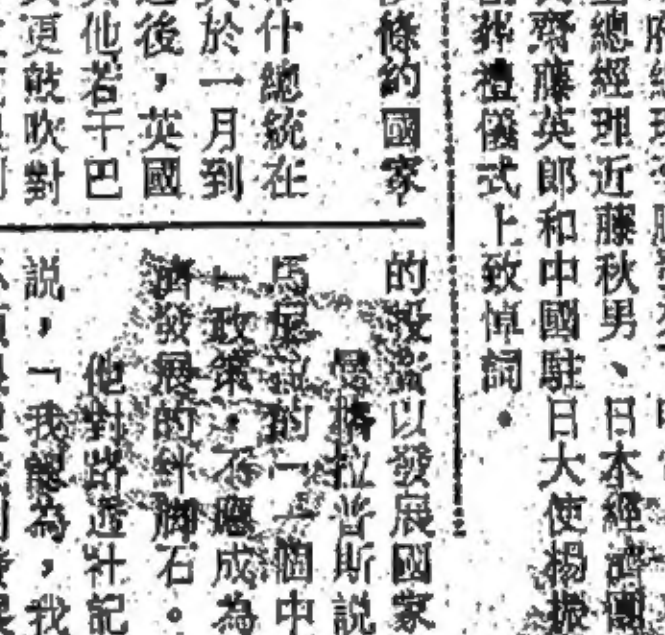 總經理近藤秋男、日本經濟團
齋藤英郎和中國駐日大使楊振
葬禮儀式上致悼詞。
條約的國家
什總統在
於一月到
後，英國
他若干巴
更鼓吹對
的投資以發展國家
曼格拉普斯説
馬尼拉的「一個中
」政策，不應成為
濟發展的絆脚石。
他對路透社記
説，「我認為，我